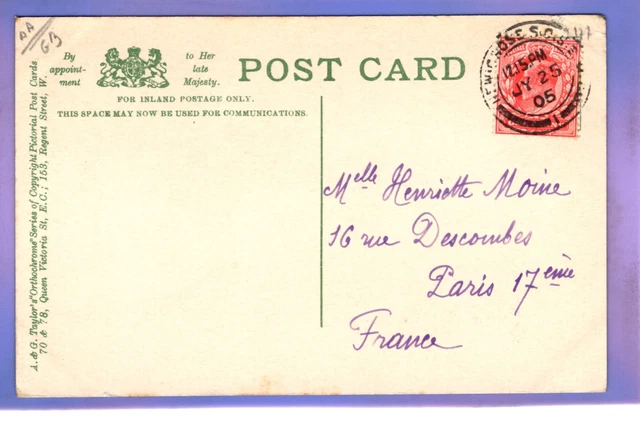 AA
GB
By
appoint-
ment
to Her
late
Majesty.
POST CARD
FOR INLAND POSTAGE ONLY.
THIS SPACE MAY NOW BE USED FOR COMMUNICATIONS.
A. & G. Taylor's "Orthochrome" Series of Copyright Pictorial Post Cards
70 & 78, Queen Victoria St, E.C.; 153, Regent Street, W.
12.15 PM
JY 25
05
Melle Henriette Moine
16 rue Descombes
Paris 17ème
France